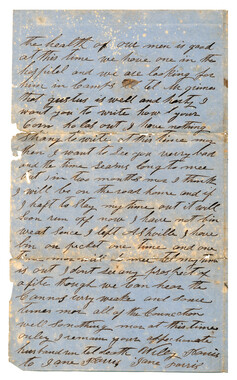 the health of our men is good
at this time we have one in the
hospital and we are looking for
him in Camp tel
that gustus is well and harty I
want you to write how your
Corn holds out I have nothing
strang to write at this time my
I want to see you very bad
and the time seams long to me
but in two months more I think
I will be on the road home and if
I haft to stay my time out it will
soon run up now I have not bin
since I left Ashville I have
bin on picket one time and on
time my time
is out I dont see any prospect of
a fite though we can hear the
Cannos every weake and some
times more all of the Conection
well nothing more at this time
only I remain your affectionate
husband un tel death
to Jane Jane